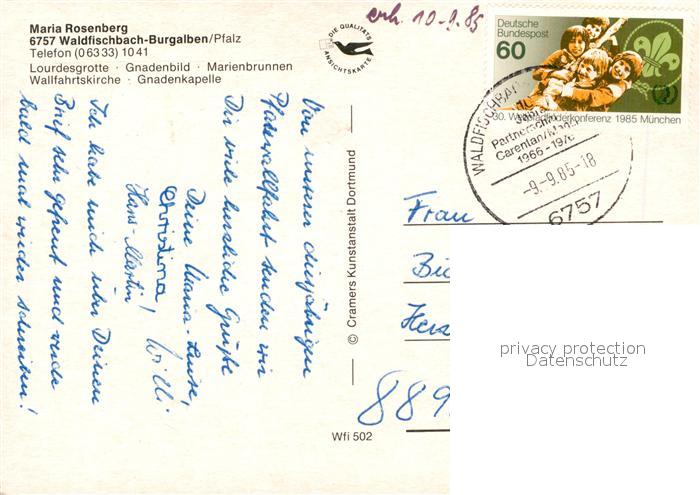 Maria Rosenberg
6757 Waldfischbach-Burgalben/Pfalz
Telefon (06333) 1041
Lourdesgrotte · Gnadenbild · Marienbrunnen
Wallfahrtskirche · Gnadenkapelle
erh. 10.9.85
DIE QUALITÄTS
ANSICHTSKARTE
Deutsche
Bundespost
60
30. Weltpfadfinderkonferenz 1985 München
WALDFISCHBA
Partnerschaft
Carentan/Manche
1966-1976
-9.-9.85-18
6757
Von unserer diesjährigen
Pfalzwallfahrt senden wir
Dir viele herzliche Grüße
Deine Maria-Luise,
Christina
Hans-Martin!
Willi
Ich habe mich über Deinen
Brief sehr gefreut und werde
bald mal wieder schreiben!
© Cramers Kunstanstalt Dortmund
Frau
Bi
Her
889
Wfi 502
privacy protection
Datenschutz